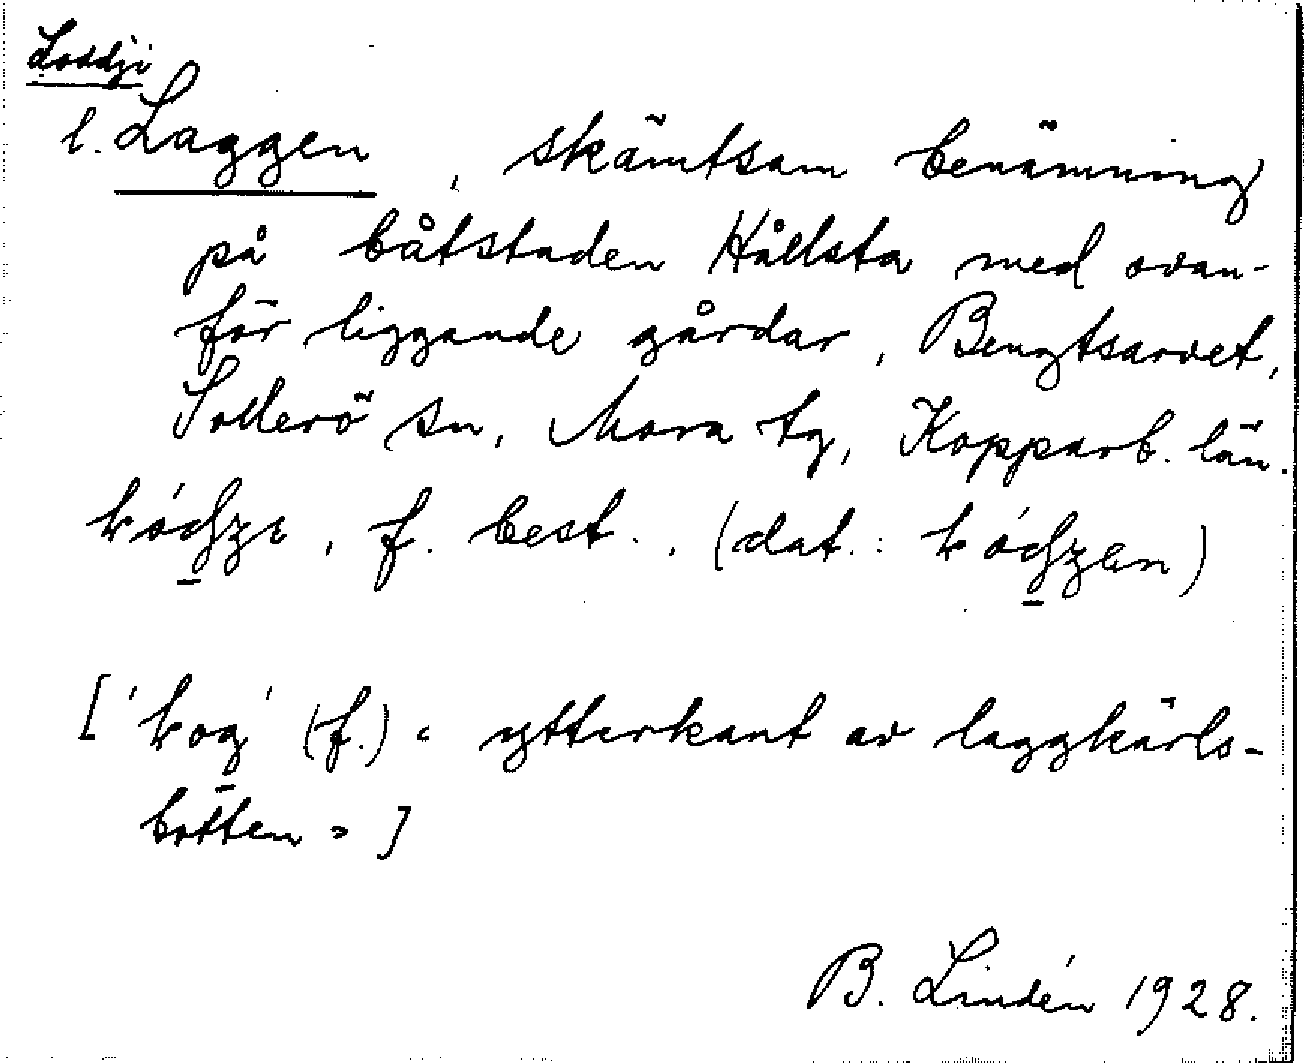 Loddji
l. Laggen, skämtsam benämning
på båtstaden Hållsta med ovan-
för liggande gårdar, Bengtsarvet,
Sollerö sn, Mora tg, Kopparb. län.
f. best., (dat.:
(f.) = ytterkant av laggkärls-
botten = ]
B. Lindén 1928.